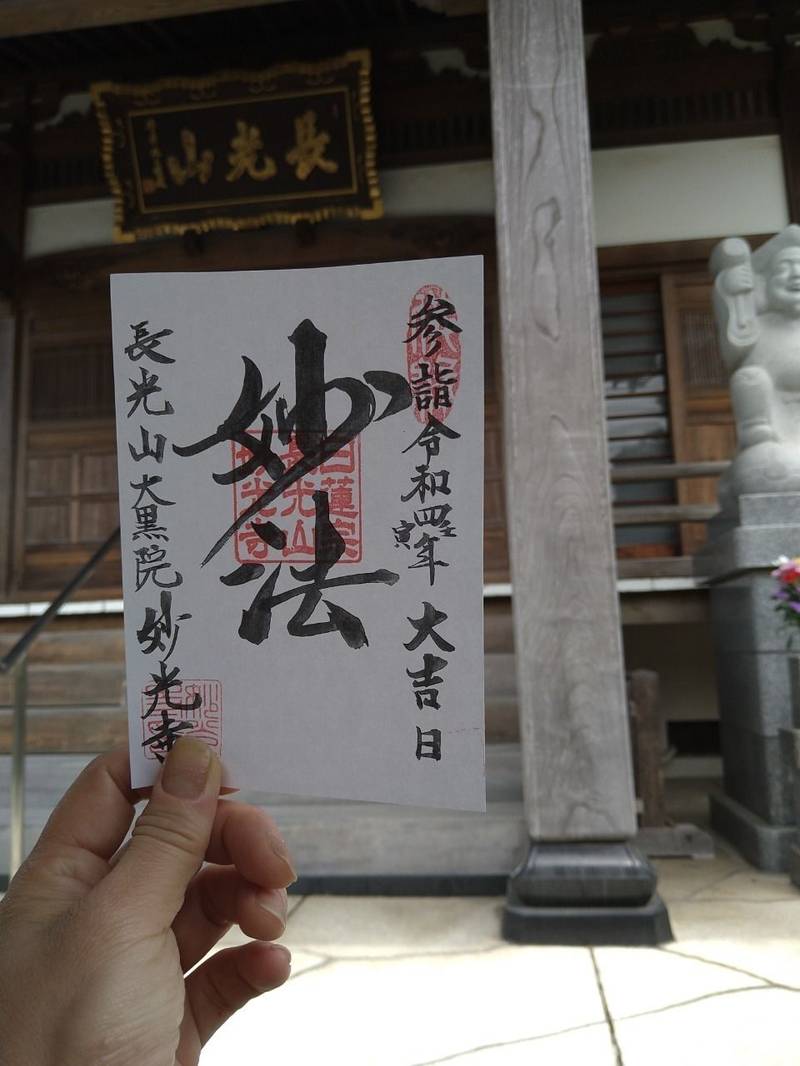 長光山
参詣令和四壬寅年大吉日
妙法
日蓮宗
長光山
妙光寺
長光山大黒院妙光寺